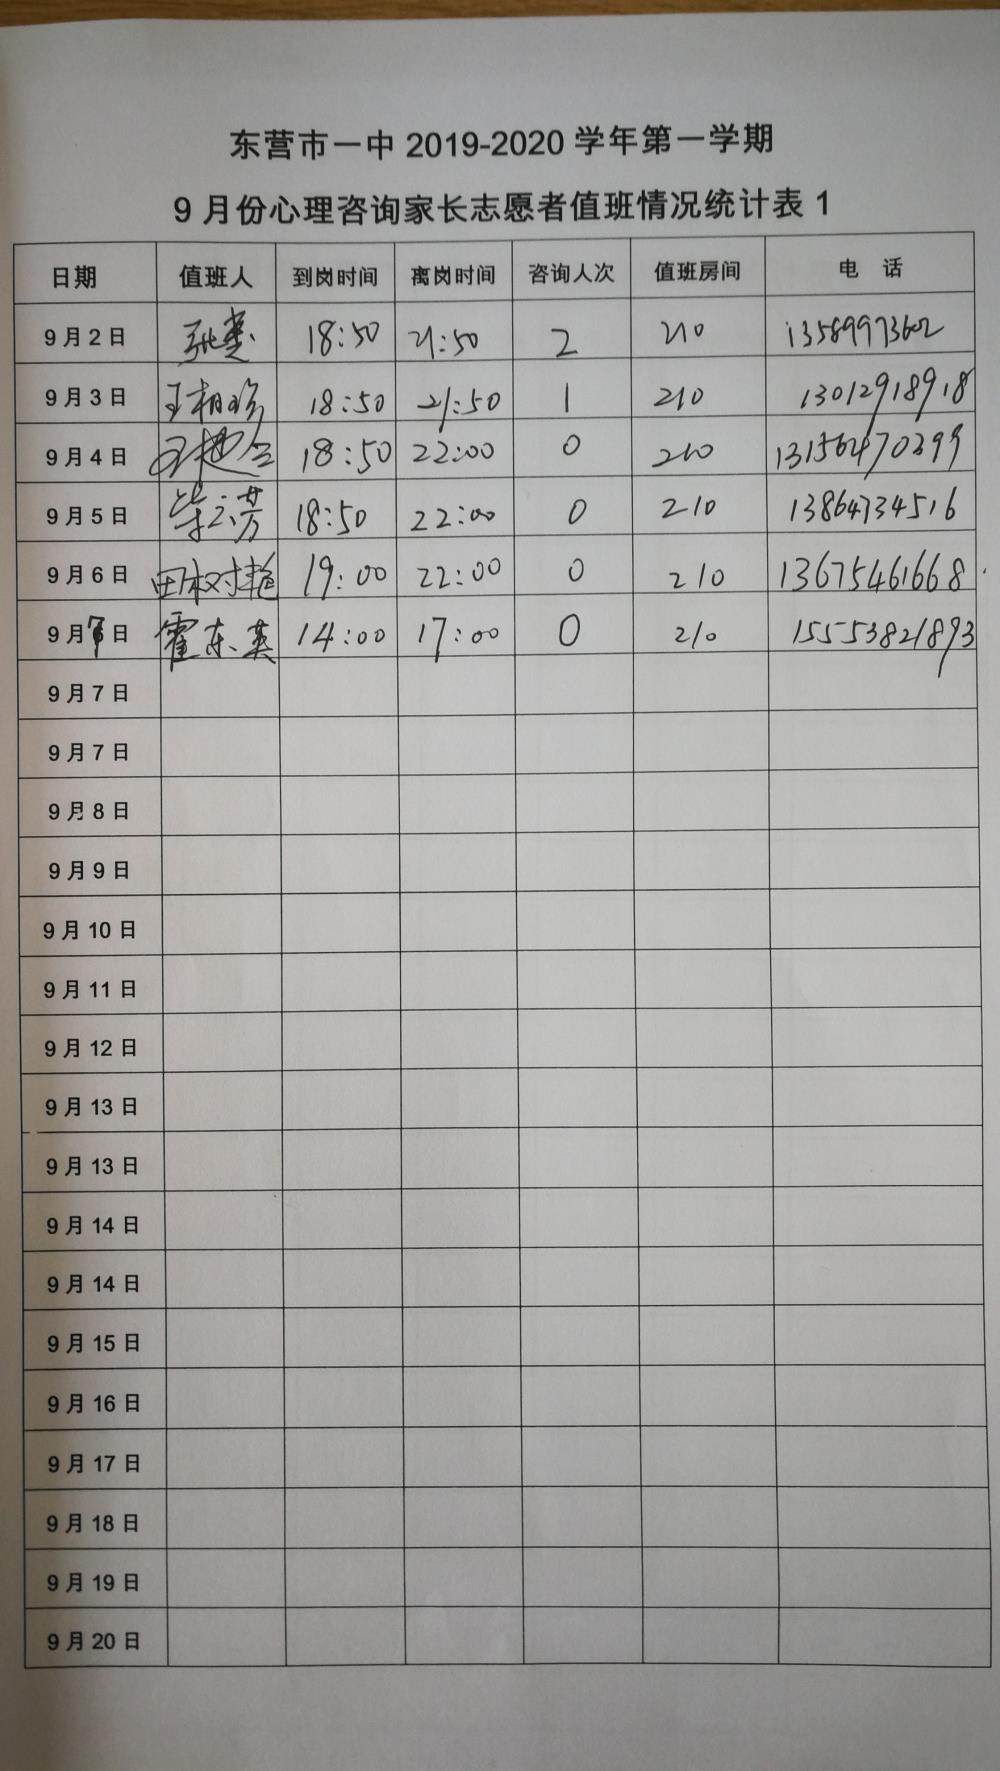 东营市一中 2019-2020 学年第一学期
9 月份心理咨询家长志愿者值班情况统计表 1
日期 值班人 到岗时间 离岗时间 咨询人次 值班房间 电 话
9 月 2 日 18:50 21:50 2 210 13589973602
9 月 3 日 18:50 21:50 1 210 13012918918
9 月 4 日 18:50 22:00 0 210 13156470399
9 月 5 日 18:50 22:00 0 210 13864734516
9 月 6 日 19:00 22:00 0 210 13675461668
9 月 7 日 霍东英 14:00 17:00 0 210 15553821893
9 月 7 日
9 月 7 日
9 月 8 日
9 月 9 日
9 月 10 日
9 月 11 日
9 月 12 日
9 月 13 日
9 月 13 日
9 月 14 日
9 月 14 日
9 月 15 日
9 月 16 日
9 月 17 日
9 月 18 日
9 月 19 日
9 月 20 日